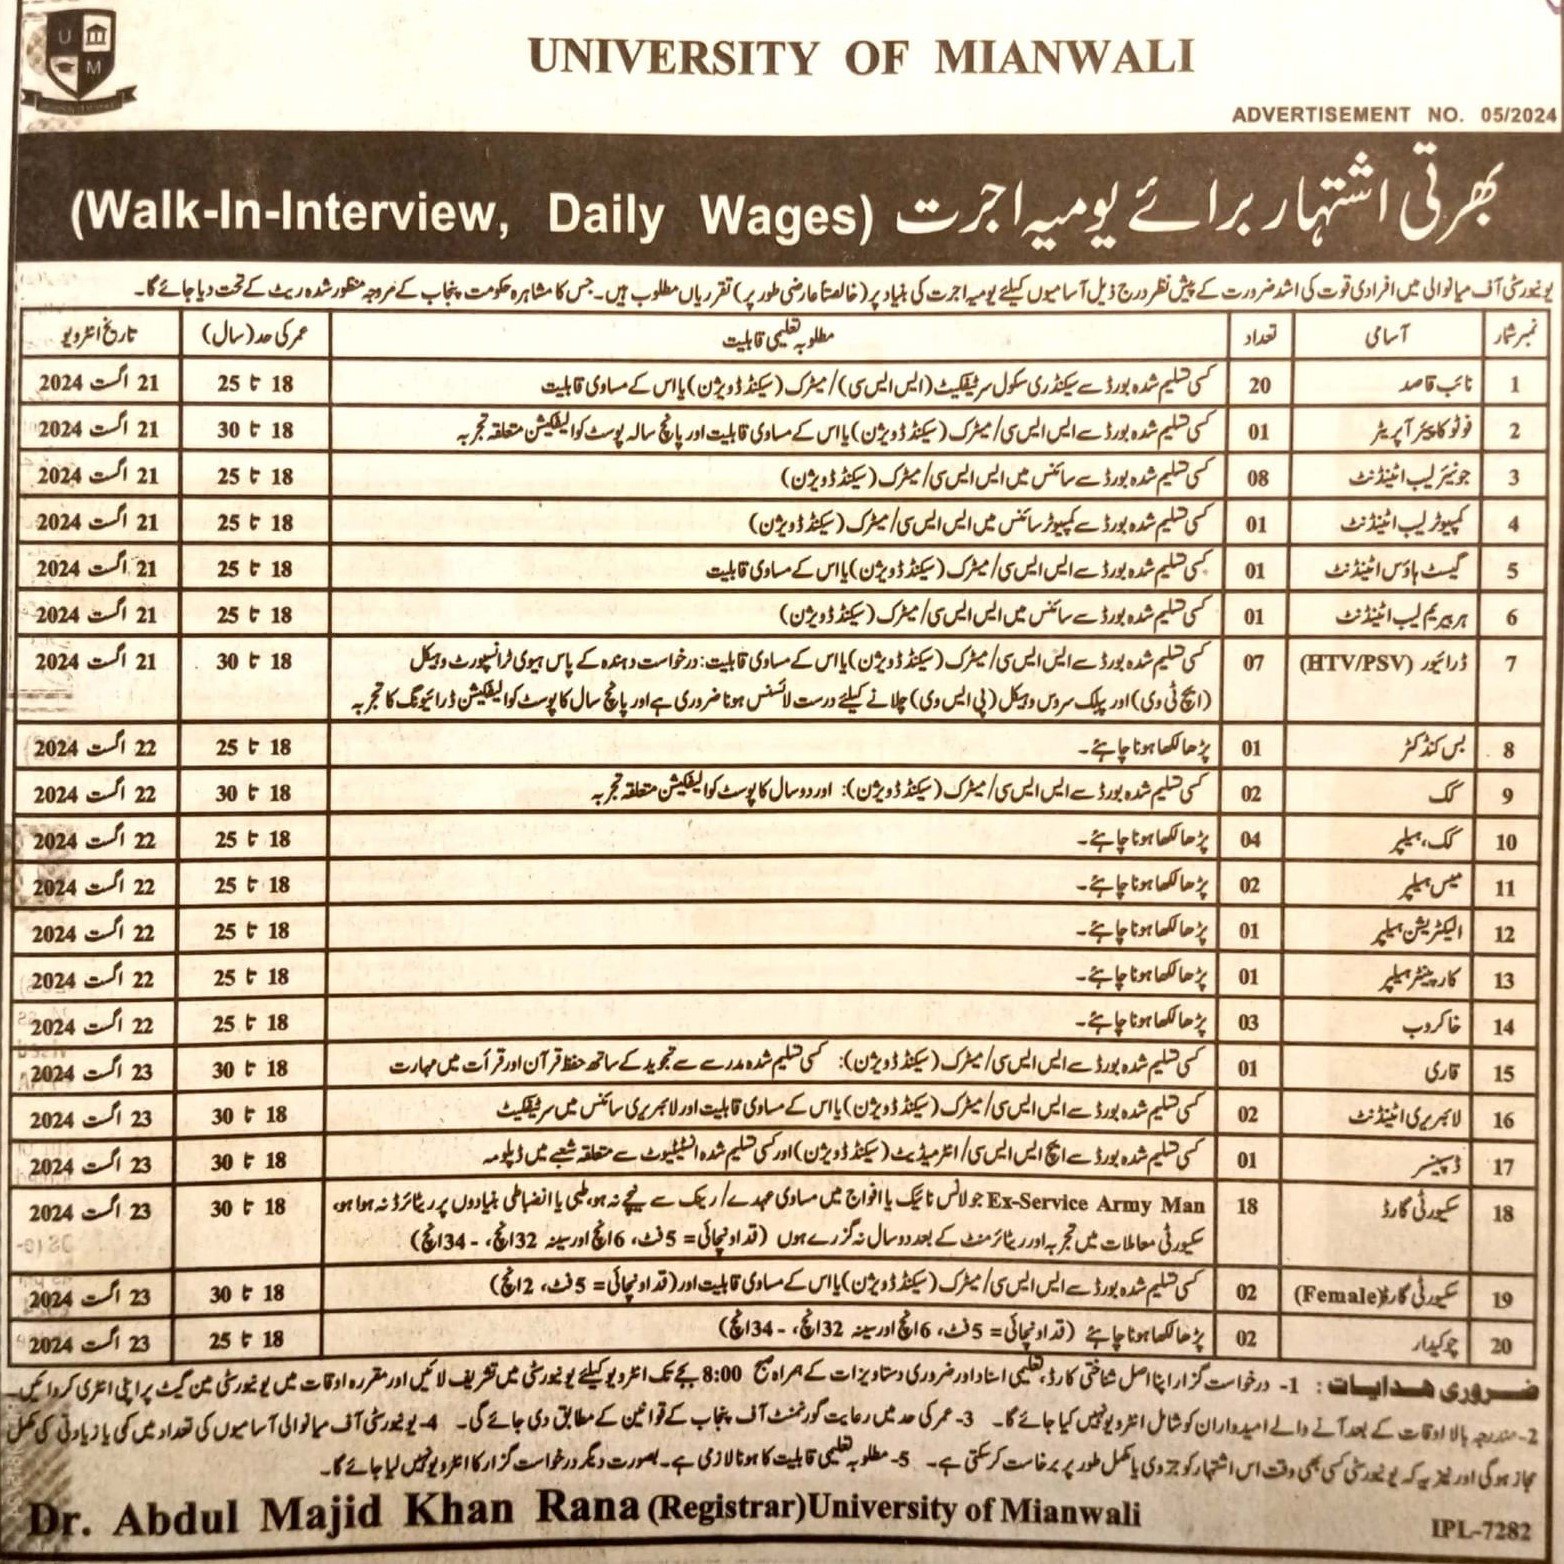 U
M
UNIVERSITY OF MIANWALI
ADVERTISEMENT NO. 05/2024
بھرتی اشتہار برائے یومیہ اجرت (Walk-In-Interview, Daily Wages)
یونیورسٹی آف میانوالی میں افرادی قوت کی اشد ضرورت کے پیش نظر درج ذیل آسامیوں کیلئے یومیہ اجرت کی بنیاد پر (خالصتاً عارضی طور پر) تقرریاں مطلوب ہیں۔ جس کا مشاہرہ حکومت پنجاب کے مروجہ منظور شدہ ریٹ کے تحت دیا جائے گا۔
نمبر شمار آسامی تعداد مطلوبہ تعلیمی قابلیت عمر کی حد (سال) تاریخ انٹرویو
1 نائب قاصد 20 کسی تسلیم شدہ بورڈ سے سیکنڈری سکول سرٹیفکیٹ (ایس ایس سی)/ میٹرک (سیکنڈ ڈویژن) یا اس کے مساوی قابلیت 18 تا 25 21 اگست 2024
2 فوٹو کاپیئر آپریٹر 01 کسی تسلیم شدہ بورڈ سے ایس ایس سی/ میٹرک (سیکنڈ ڈویژن) یا اس کے مساوی قابلیت اور پانچ سالہ پوسٹ کوالیفکیشن متعلقہ تجربہ 18 تا 30 21 اگست 2024
3 جونیئر لیب اٹینڈنٹ 08 کسی تسلیم شدہ بورڈ سے سائنس میں ایس ایس سی/ میٹرک (سیکنڈ ڈویژن) 18 تا 25 21 اگست 2024
4 کمپیوٹر لیب اٹینڈنٹ 01 کسی تسلیم شدہ بورڈ سے کمپیوٹر سائنس میں ایس ایس سی/ میٹرک (سیکنڈ ڈویژن) 18 تا 25 21 اگست 2024
5 گیسٹ ہاؤس اٹینڈنٹ 01 کسی تسلیم شدہ بورڈ سے ایس ایس سی/ میٹرک (سیکنڈ ڈویژن) یا اس کے مساوی قابلیت 18 تا 25 21 اگست 2024
6 ہربیریم لیب اٹینڈنٹ 01 کسی تسلیم شدہ بورڈ سے سائنس میں ایس ایس سی/ میٹرک (سیکنڈ ڈویژن) 18 تا 25 21 اگست 2024
7 ڈرائیور (HTV/PSV) 07 کسی تسلیم شدہ بورڈ سے ایس ایس سی/ میٹرک (سیکنڈ ڈویژن) یا اس کے مساوی قابلیت: درخواست دہندہ کے پاس ہیوی ٹرانسپورٹ وہیکل 18 تا 30 21 اگست 2024
(ایچ ٹی وی) اور پبلک سروس وہیکل (پی ایس وی) چلانے کیلئے درست لائسنس ہونا ضروری ہے اور پانچ سال کا پوسٹ کوالیفکیشن ڈرائیونگ کا تجربہ
8 بس کنڈکٹر 01 پڑھا لکھا ہونا چاہئے۔ 18 تا 25 22 اگست 2024
9 کک 02 کسی تسلیم شدہ بورڈ سے ایس ایس سی/ میٹرک (سیکنڈ ڈویژن): اور دو سال کا پوسٹ کوالیفکیشن متعلقہ تجربہ 18 تا 30 22 اگست 2024
10 کک، ہیلپر 04 پڑھا لکھا ہونا چاہئے۔ 18 تا 25 22 اگست 2024
11 میس ہیلپر 02 پڑھا لکھا ہونا چاہئے۔ 18 تا 25 22 اگست 2024
12 الیکٹریشن ہیلپر 01 پڑھا لکھا ہونا چاہئے۔ 18 تا 25 22 اگست 2024
13 کارپینٹر ہیلپر 01 پڑھا لکھا ہونا چاہئے۔ 18 تا 25 22 اگست 2024
14 خاکروب 03 پڑھا لکھا ہونا چاہئے۔ 18 تا 25 22 اگست 2024
15 قاری 01 کسی تسلیم شدہ بورڈ سے ایس ایس سی/ میٹرک (سیکنڈ ڈویژن): کسی تسلیم شدہ مدرسے سے تجوید کے ساتھ حفظ قرآن اور قرأت میں مہارت 18 تا 30 23 اگست 2024
16 لائبریری اٹینڈنٹ 02 کسی تسلیم شدہ بورڈ سے ایس ایس سی/ میٹرک (سیکنڈ ڈویژن) یا اس کے مساوی قابلیت اور لائبریری سائنس میں سرٹیفکیٹ 18 تا 30 23 اگست 2024
17 ڈسپنسر 01 کسی تسلیم شدہ بورڈ سے ایچ ایس ایس سی/ انٹرمیڈیٹ (سیکنڈ ڈویژن) اور کسی تسلیم شدہ انسٹیٹیوٹ سے متعلقہ شعبے میں ڈپلومہ 18 تا 30 23 اگست 2024
18 سکیورٹی گارڈ 18 Ex-Service Army Man جو لانس نائیک یا افواج میں مساوی عہدے/ رینک سے نیچے نہ ہو، طبی یا انضباطی بنیادوں پر ریٹائرڈ نہ ہوا ہو، 18 تا 30 23 اگست 2024
سکیورٹی معاملات میں تجربہ اور ریٹائرمنٹ کے بعد دو سال نہ گزرے ہوں (قد اونچائی = 5 فٹ، 6 انچ اور سینہ 32 انچ، - 34 انچ)
19 سکیورٹی گارڈ (Female) 02 کسی تسلیم شدہ بورڈ سے ایس ایس سی/ میٹرک (سیکنڈ ڈویژن) یا اس کے مساوی قابلیت اور (قد اونچائی = 5 فٹ، 2 انچ) 18 تا 30 23 اگست 2024
20 چوکیدار 02 پڑھا لکھا ہونا چاہئے (قد اونچائی = 5 فٹ، 6 انچ اور سینہ 32 انچ، - 34 انچ) 18 تا 25 23 اگست 2024
ضروری ہدایات: 1- درخواست گزار اپنا اصل شناختی کارڈ، تعلیمی اسناد اور ضروری دستاویزات کے ہمراہ صبح 8:00 بجے تک انٹرویو کیلئے یونیورسٹی میں تشریف لائیں اور مقررہ اوقات میں یونیورسٹی مین گیٹ پر اپنی انٹری کروائیں۔
2- مندرجہ بالا اوقات کے بعد آنے والے امیدواران کو شامل انٹرویو نہیں کیا جائے گا۔ 3- عمر کی حد میں رعایت گورنمنٹ آف پنجاب کے قوانین کے مطابق دی جائے گی۔ 4- یونیورسٹی آف میانوالی آسامیوں کی تعداد میں کمی یا زیادتی کی مکمل
مجاز ہوگی اور نیز یہ کہ یونیورسٹی کسی بھی وقت اس اشتہار کو جزوی یا مکمل طور پر برخاست کر سکتی ہے۔ 5- مطلوبہ تعلیمی قابلیت کا ہونا لازمی ہے۔ بصورت دیگر درخواست گزار کا انٹرویو نہیں لیا جائے گا۔
Dr. Abdul Majid Khan Rana (Registrar) University of Mianwali
IPL-7282